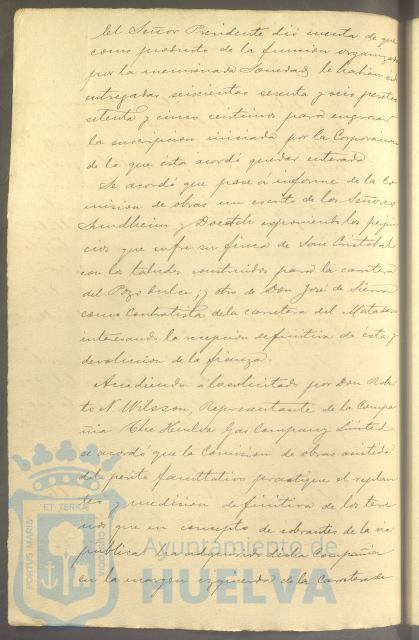 El Señor Presidente dió cuenta de que
como producto de la funcion organizada
por la mencionada Sociedad le habian sido
entregadas seiscientas sesenta y seis pesetas
setenta y cinco centimos para engrosar
la suscripcion iniciada por la Corporacion
de lo que ésta acordó quedar enterada.
Se acordó que pase á informe de la Co-
mision de obras un escrito de los Señores
Sundheim y Doetsch exponiendo los perjui-
cios que sufre su finca de San Cristobal
con los taludes construidos para la carretera
del Pozo dulce; y otro de Don José de Sierra
como Contratista de la carretera del Matadero
interesando la recepcion definitiva de ésta y
devolucion de la fianza.
Accediendo á lo solicitado por Don Rober-
to N. Wilsson, Representante de la Compa-
ñia The Huelva Gas Company Limited
se acordó que la Comision de obras asistida
del perito facultativo practique el replan-
teo y medicion definitiva de los terre-
nos que en concepto de sobrantes de la via
publica ha adquirido dicha Compañia
en la margen izquierda de la Carretera de
PORTUS MARIS
ET TERRAE
CUSTODIA
Ayuntamiento de
HUELVA